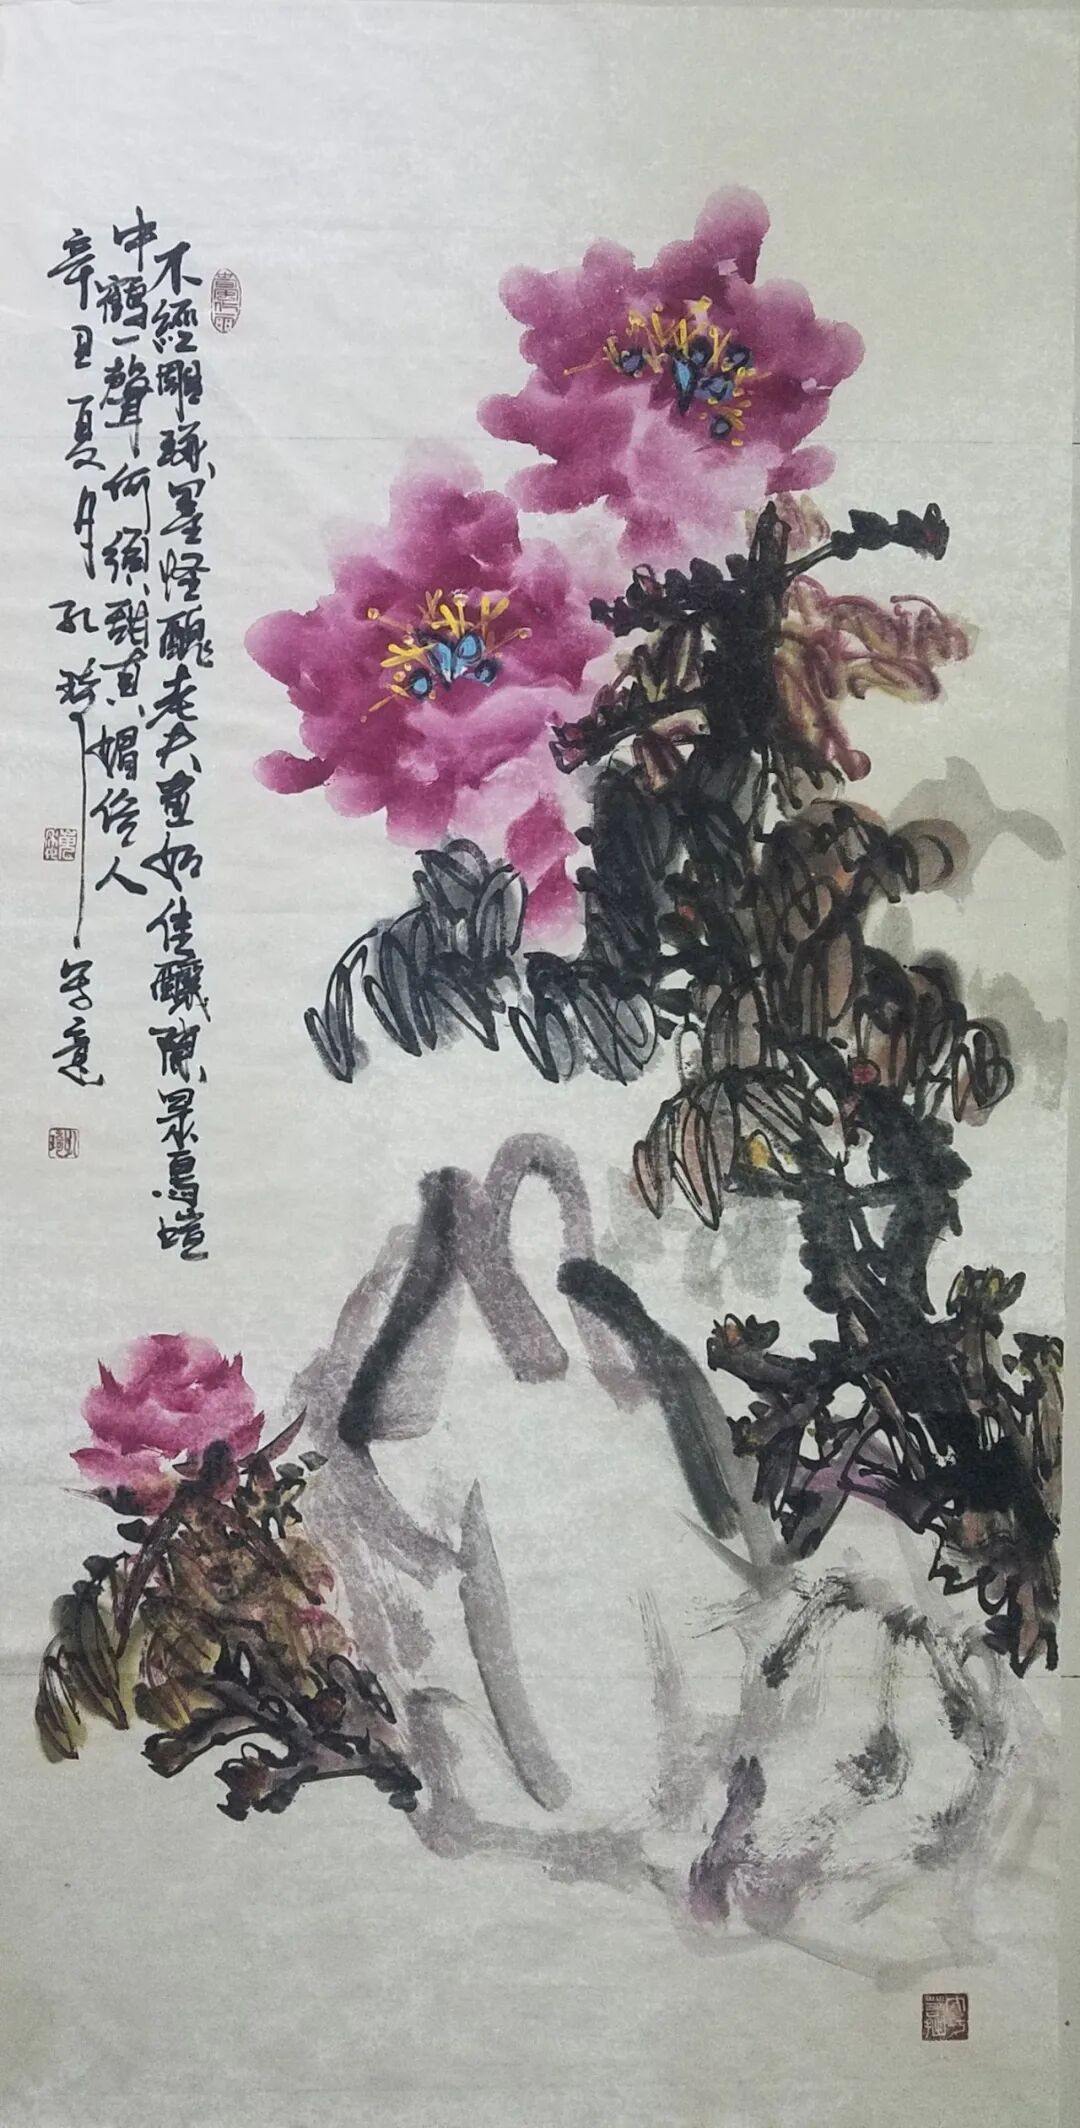 不經雕琢墨怪醜老夫畫如佳釀陳眾鳥喧
中鶴一聲何須甜真媚俗人
辛丑夏月孔琦寫意